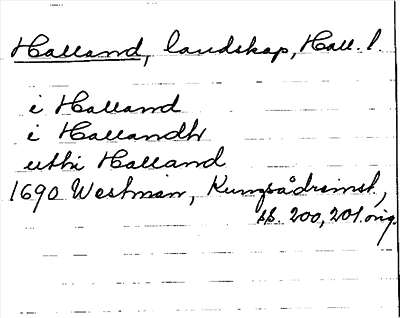 Halland, landskap, Hall. l.
i Halland
i Hallandh
uthi Halland
1690 Westman, Kungsådrsinst,
ss. 200, 201 orig.